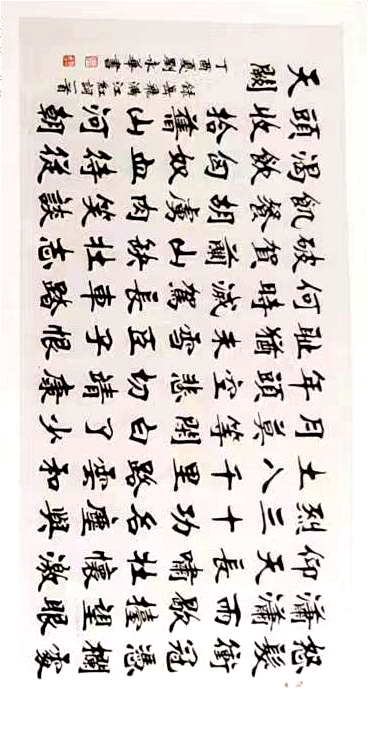 怒髮衝冠憑欄處
瀟瀟雨歇擡望眼
仰天長嘯壯懷激
烈三十功名塵與
土八千里路雲和
月莫等閒白了少
年頭空悲切靖康
耻猶未雪臣子恨
何時滅駕長車踏
破賀蘭山缺壯志
飢餐胡虜肉笑談
渴飲匈奴血待從
頭收拾舊山河朝
天闕
錄岳飛滿江紅詞一首
丁酉夏劉永華書